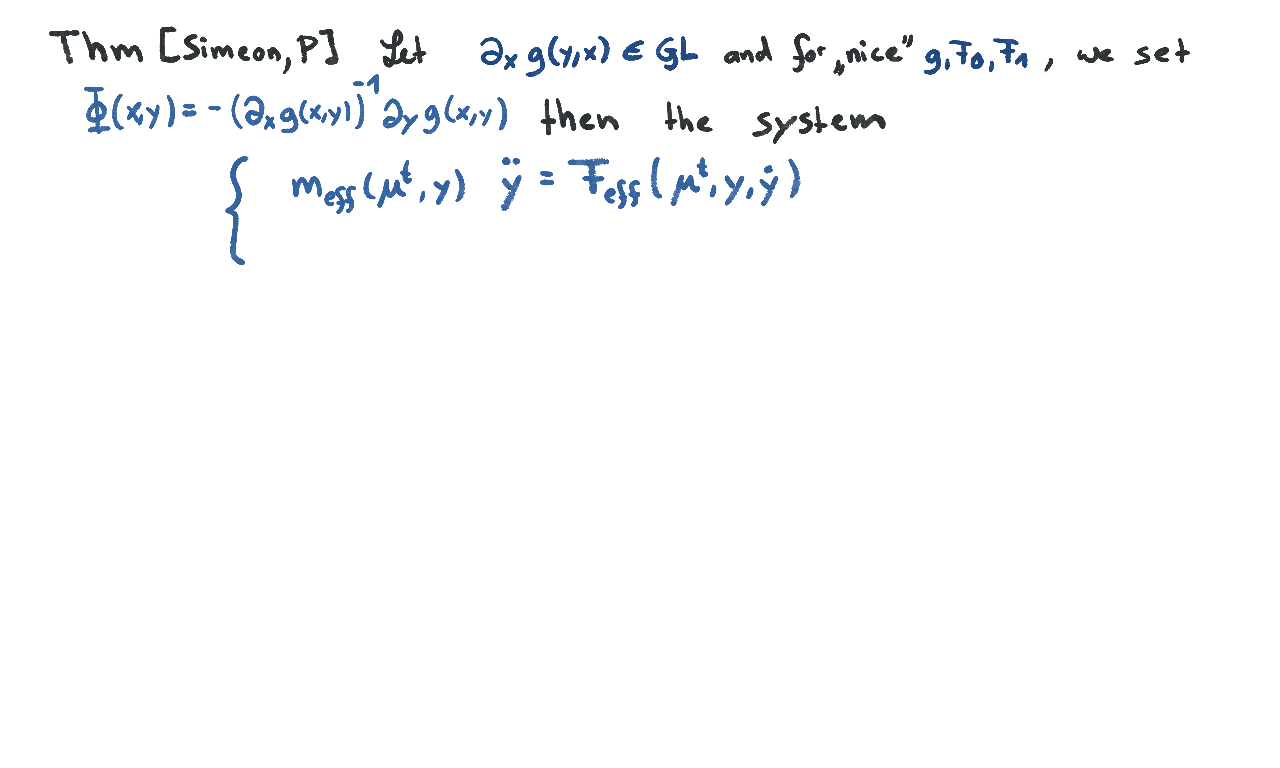 Thm [Simeon, P] Let ∂ₓ g(y,x) ∈ GL and for „nice" g, F₀, F₁, we set
Φ(x,y) = - (∂ₓg(x,y))⁻¹ ∂ᵧg(x,y) then the system
{ m_eff(μᵗ, y) ÿ = F_eff(μᵗ, y, ẏ)